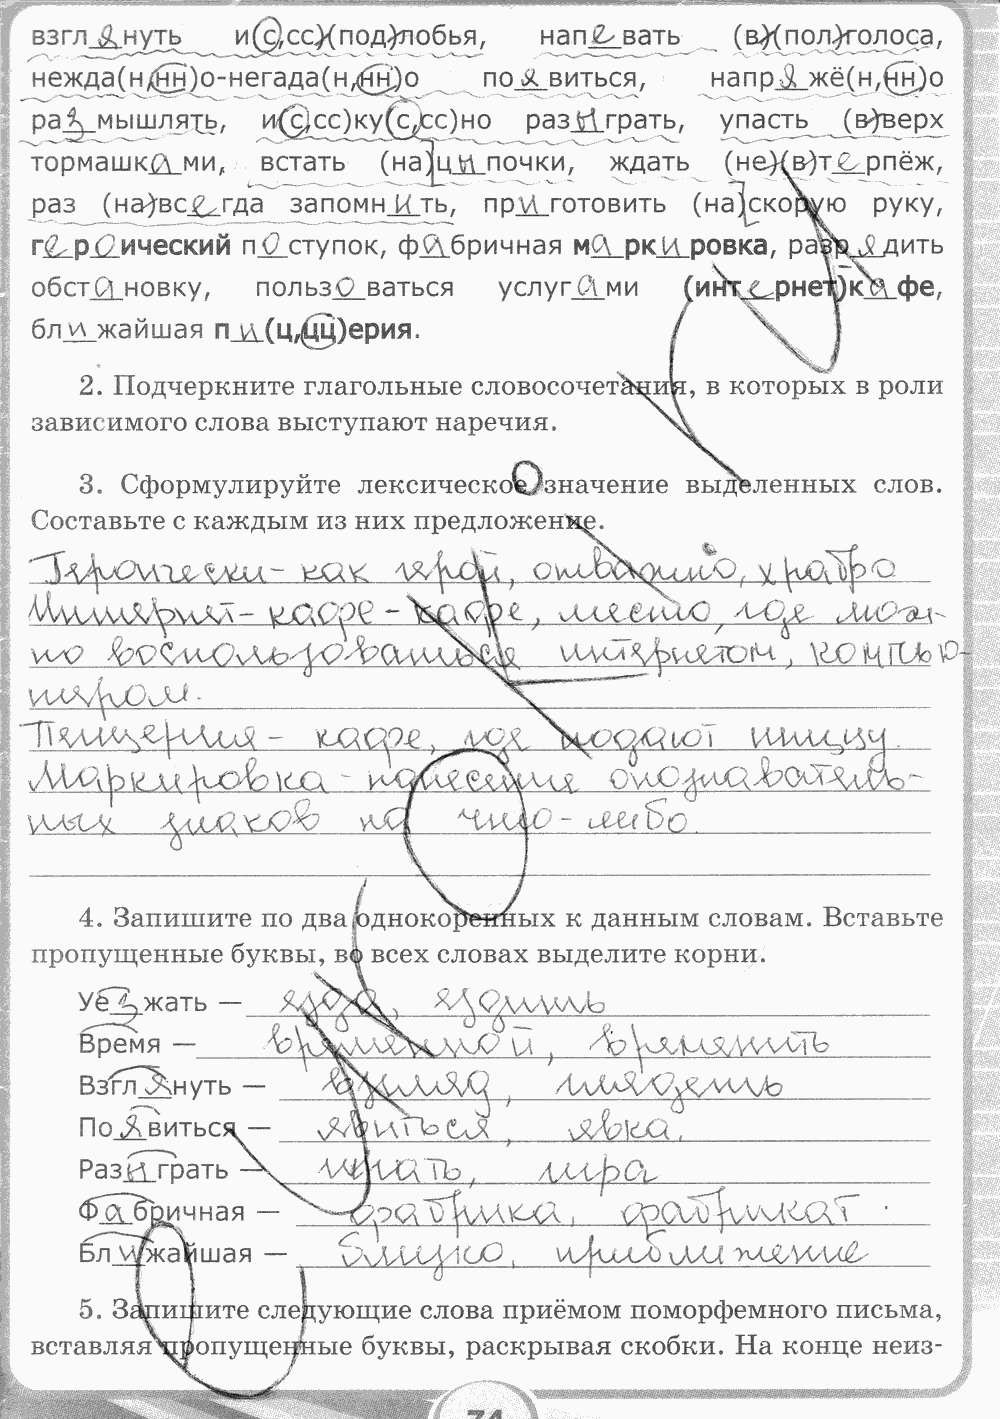 взгл я нуть и(с,сс)(под)лобья, нап е вать (в)(пол)голоса,
нежда(н,нн)о-негада(н,нн)о по я виться, напр я жё(н,нн)о
ра з мышлять, и(с,сс)ку(с,сс)но раз ы грать, упасть (в)верх
тормашк а ми, встать (на)ц ы почки, ждать (не)(в)т е рпёж,
раз (на)вс е гда запомн и ть, пр и готовить (на)скорую руку,
г е р о ический п о ступок, ф а бричная м а рк и ровка, разр я дить
обст а новку, польз о ваться услуг а ми (инт е рнет)к а фе,
бл и жайшая п и (ц,цц)ерия.
2. Подчеркните глагольные словосочетания, в которых в роли
зависимого слова выступают наречия.
3. Сформулируйте лексическое значение выделенных слов.
Составьте с каждым из них предложение.
Героически - как герой, отважно, храбро
Интернет-кафе - кафе, место, где мож-
но воспользоваться интернетом, компью-
тером.
Пиццерия - кафе, где подают пиццу.
Маркировка - нанесение опознаватель-
ных знаков на что-либо.
4. Запишите по два однокоренных к данным словам. Вставьте
пропущенные буквы, во всех словах выделите корни.
Уе з жать — езда, ездить
Время — временной, временить
Взгл я нуть — взгляд, глядеть
По я виться — явиться, явка.
Раз ы грать — играть, игра
Ф а бричная — фабрика, фабрикат
Бл и жайшая — близко, приближение
5. Запишите следующие слова приёмом поморфемного письма,
вставляя пропущенные буквы, раскрывая скобки. На конце неиз-
74